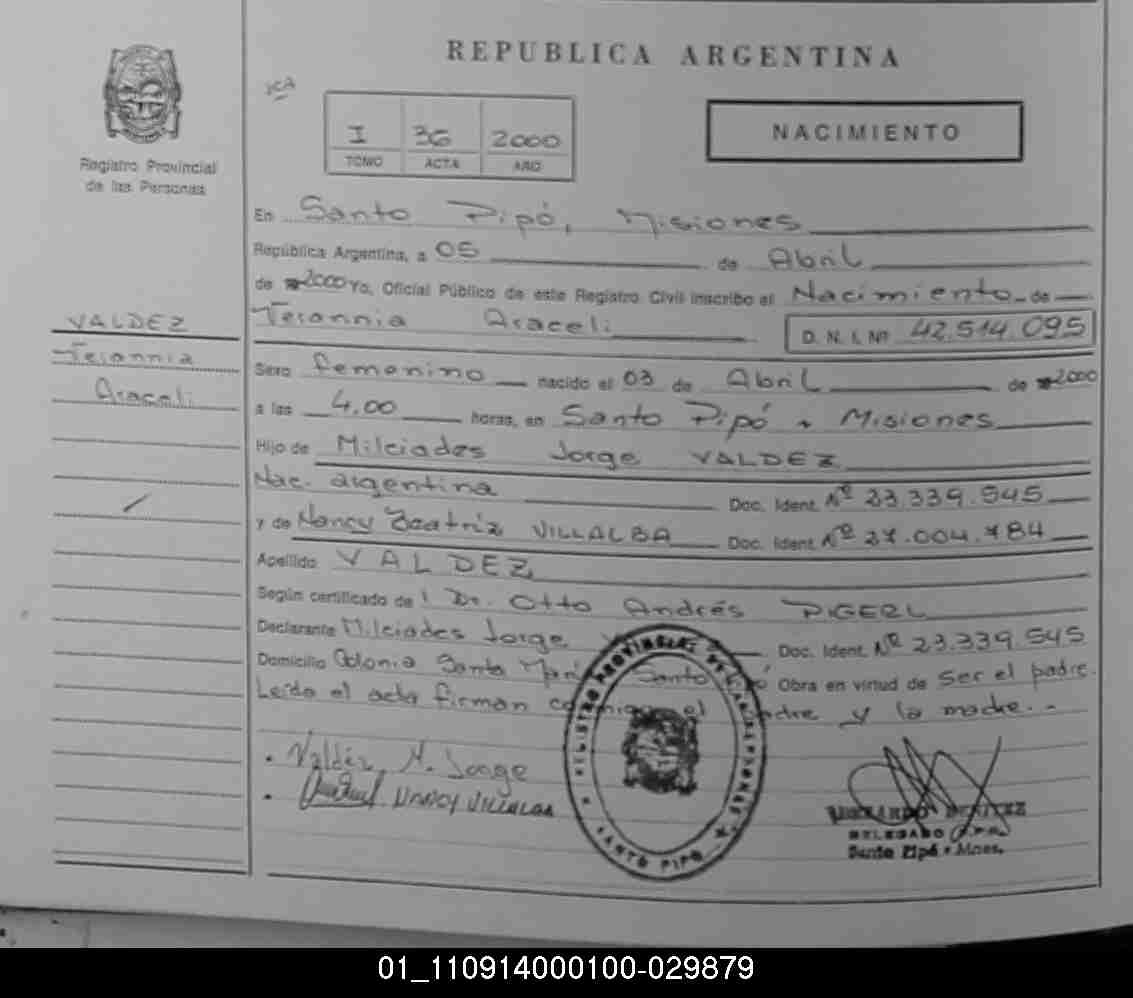 REPUBLICA ARGENTINA
Registro Provincial
de las Personas
I 36 2000
TOMO ACTA AÑO
NACIMIENTO
En Santo Pipó, Misiones
República Argentina, a 05 de Abril
de 2000 Yo, Oficial Público de este Registro Civil inscribo el Nacimiento de
Yerannia Araceli D. N. I. Nº 42.514.095
VALDEZ
Yerannia
Araceli
Sexo femenino nacido el 03 de Abril de 2000
a las 4.00 horas, en Santo Pipó - Misiones
Hijo de Milciades Jorge VALDEZ
Nac. argentina Doc. Ident. Nº 23.339.545
y de Nancy Beatriz VILLALBA Doc. Ident. Nº 27.004.784
Apellido VALDEZ
Según certificado de: Dr. Otto Andrés PIGERL
Declarante Milciades Jorge Doc. Ident. Nº 23.339.545
Domicilio Colonia Santa María Santo Pipó Obra en virtud de ser el padre.
Leída el acta firman conmigo el padre y la madre.-
Valdéz M. Jorge
NANCY VILLALBA
REGISTRO PROVINCIAL DE LAS PERSONAS
SANTO PIPO
BENITEZ
DELEGADO
Santo Pipó - Mnes.
01_110914000100-029879